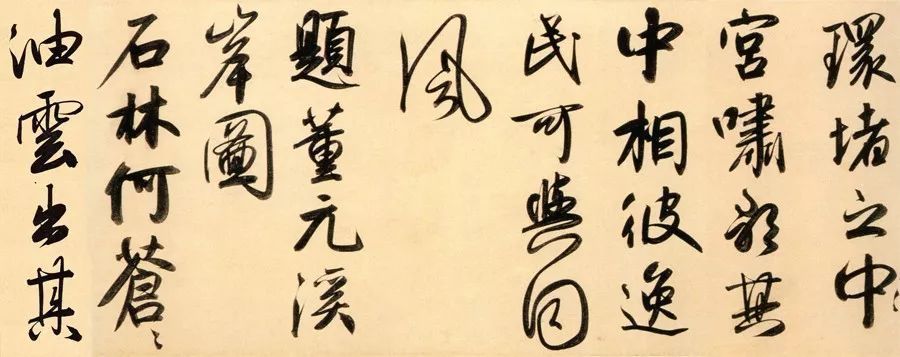 環堵之中
宮嘯歌其
中相彼逸
民可與同
風
題董元溪
岸圖
石林何蒼〻
油雲出其